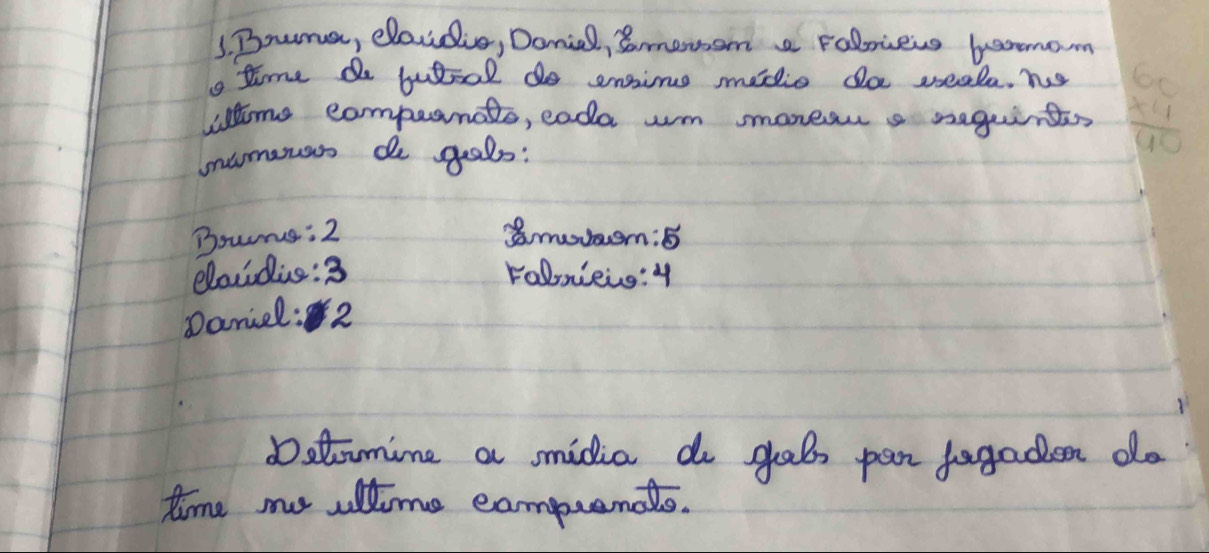 1. Bruno, Claúdio, Daniel, Emerson e Fabrício formam
o time de futsal do ensino médio da escola. no
último campeonato, cada um marcou o seguintes
números de gols:
Bruno: 2 Emerson: 5
Claúdio: 3 Fabrício: 4
Daniel: 2
Determine a média de gols por jogador do
time no ultimo campeonato.
60
x 4